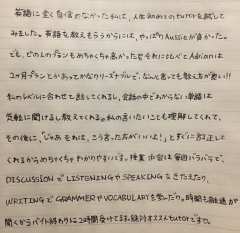 英語に全く自信のなかった私は、人生初めてのtutorを試して
みました。英語を教えもらうからには、やっぱりAussieが良かった。
でも、どの人のプランもめちゃくちゃ高かった。それにも比べAdrianは
2ヶ月プランとかあってかなりリーズナブルで、なんと言っても教え方が凄い!!
私のレベルに合わせて話してくれるし、会話の中でわからない単語は
気軽に聞けるし教えてくれる。私の言いたいことも理解してくれて、
その後に、「じゃあそれは、こう言った方がいいよ!」とすぐに訂正して
くれるからめちゃくちゃわかりやすいです。授業内容は毎回バラバラで、
DISCUSSIONでLISTENINGやSPEAKINGをきたえたり、
WRITINGでGRAMMERやVOCABULARYを習ったり。時間も融通が
聞くからバイト終わりに2時間受けてます。絶対オススメtutorですです。